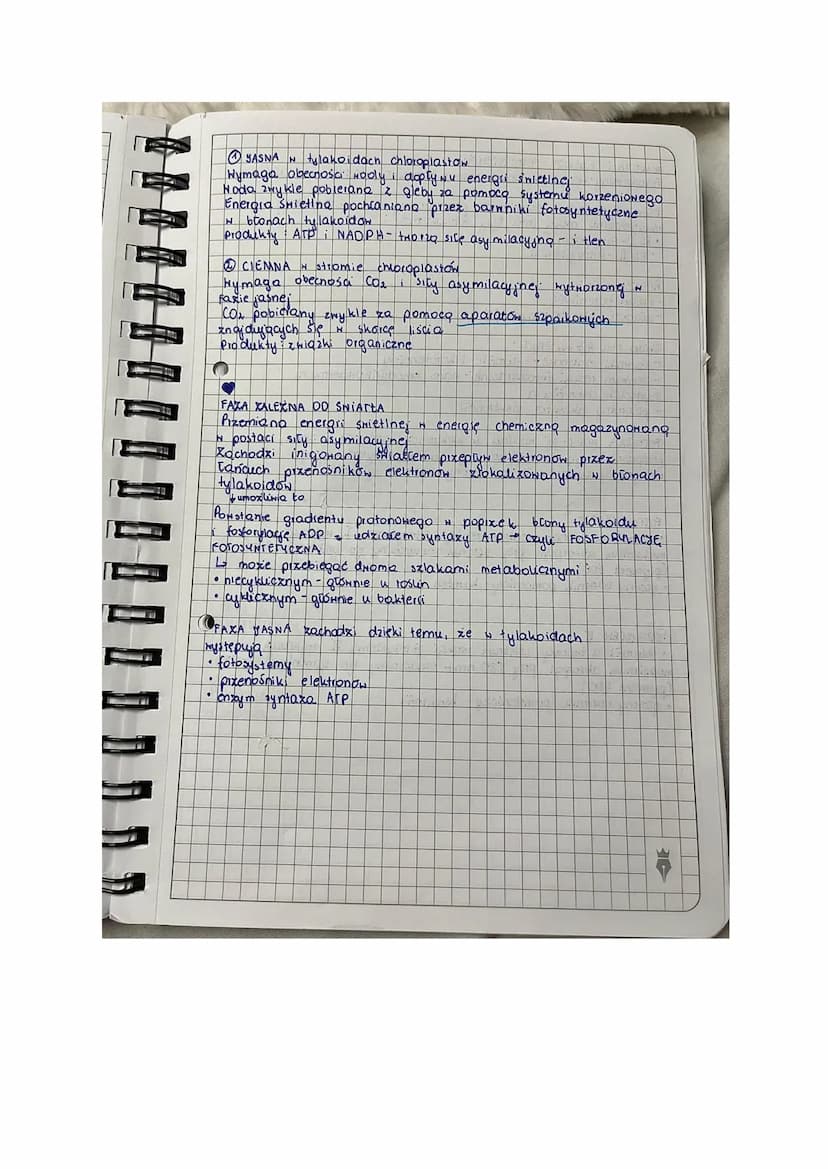 ① JASNA w tylakoidach chloroplastów
Wymaga obecności wody i dopływu energii świetlnej.
Woda zwykle pobierana z gleby za pomocą systemu korzeniowego
Energia świetlna pochłaniana przez barwniki fotosyntetyczne
w błonach tylakoidów
Produkty: ATP i NADPH - tworzą siłę asymilacyjną - i tlen
② CIEMNA w stromie chloroplastów
Wymaga obecności CO₂ i siły asymilacyjnej wytworzonej w
fazie jasnej
CO₂ pobierany zwykle za pomocą aparatów szparkowych
znajdujących się w skórce liścia
Produkty: związki organiczne
FAZA ZALEŻNA OD ŚWIATŁA
Przemiana energii świetlnej w energię chemiczną magazynowaną
w postaci siły asymilacyjnej
Zachodzi inigowany światłem przepływ elektronów przez
łańcuch przenośników elektronów zlokalizowanych w błonach
tylakoidów
↓ umożliwia to
Powstanie gradientu protonowego w poprzek błony tylakoidu
i fosforylację ADP z udziałem syntazy ATP → czyli FOSFORYLACJĘ
FOTOSYNTETYCZNA
↳ może przebiegać dwoma szlakami metabolicznymi:
• niecyklicznym - głównie u roślin
• cyklicznym - głównie u bakterii
FAZA JASNA zachodzi dzięki temu, że w tylakoidach
występują:
• fotosystemy
• przenośniki elektronów
• enzym syntaza ATP